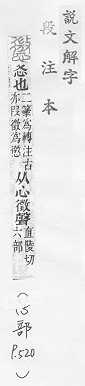 說文解字
段注本
忞也
二篆爲轉注古
亦叚徵爲懲
从心徵聲
直陵切
六部
(心部 P.520)